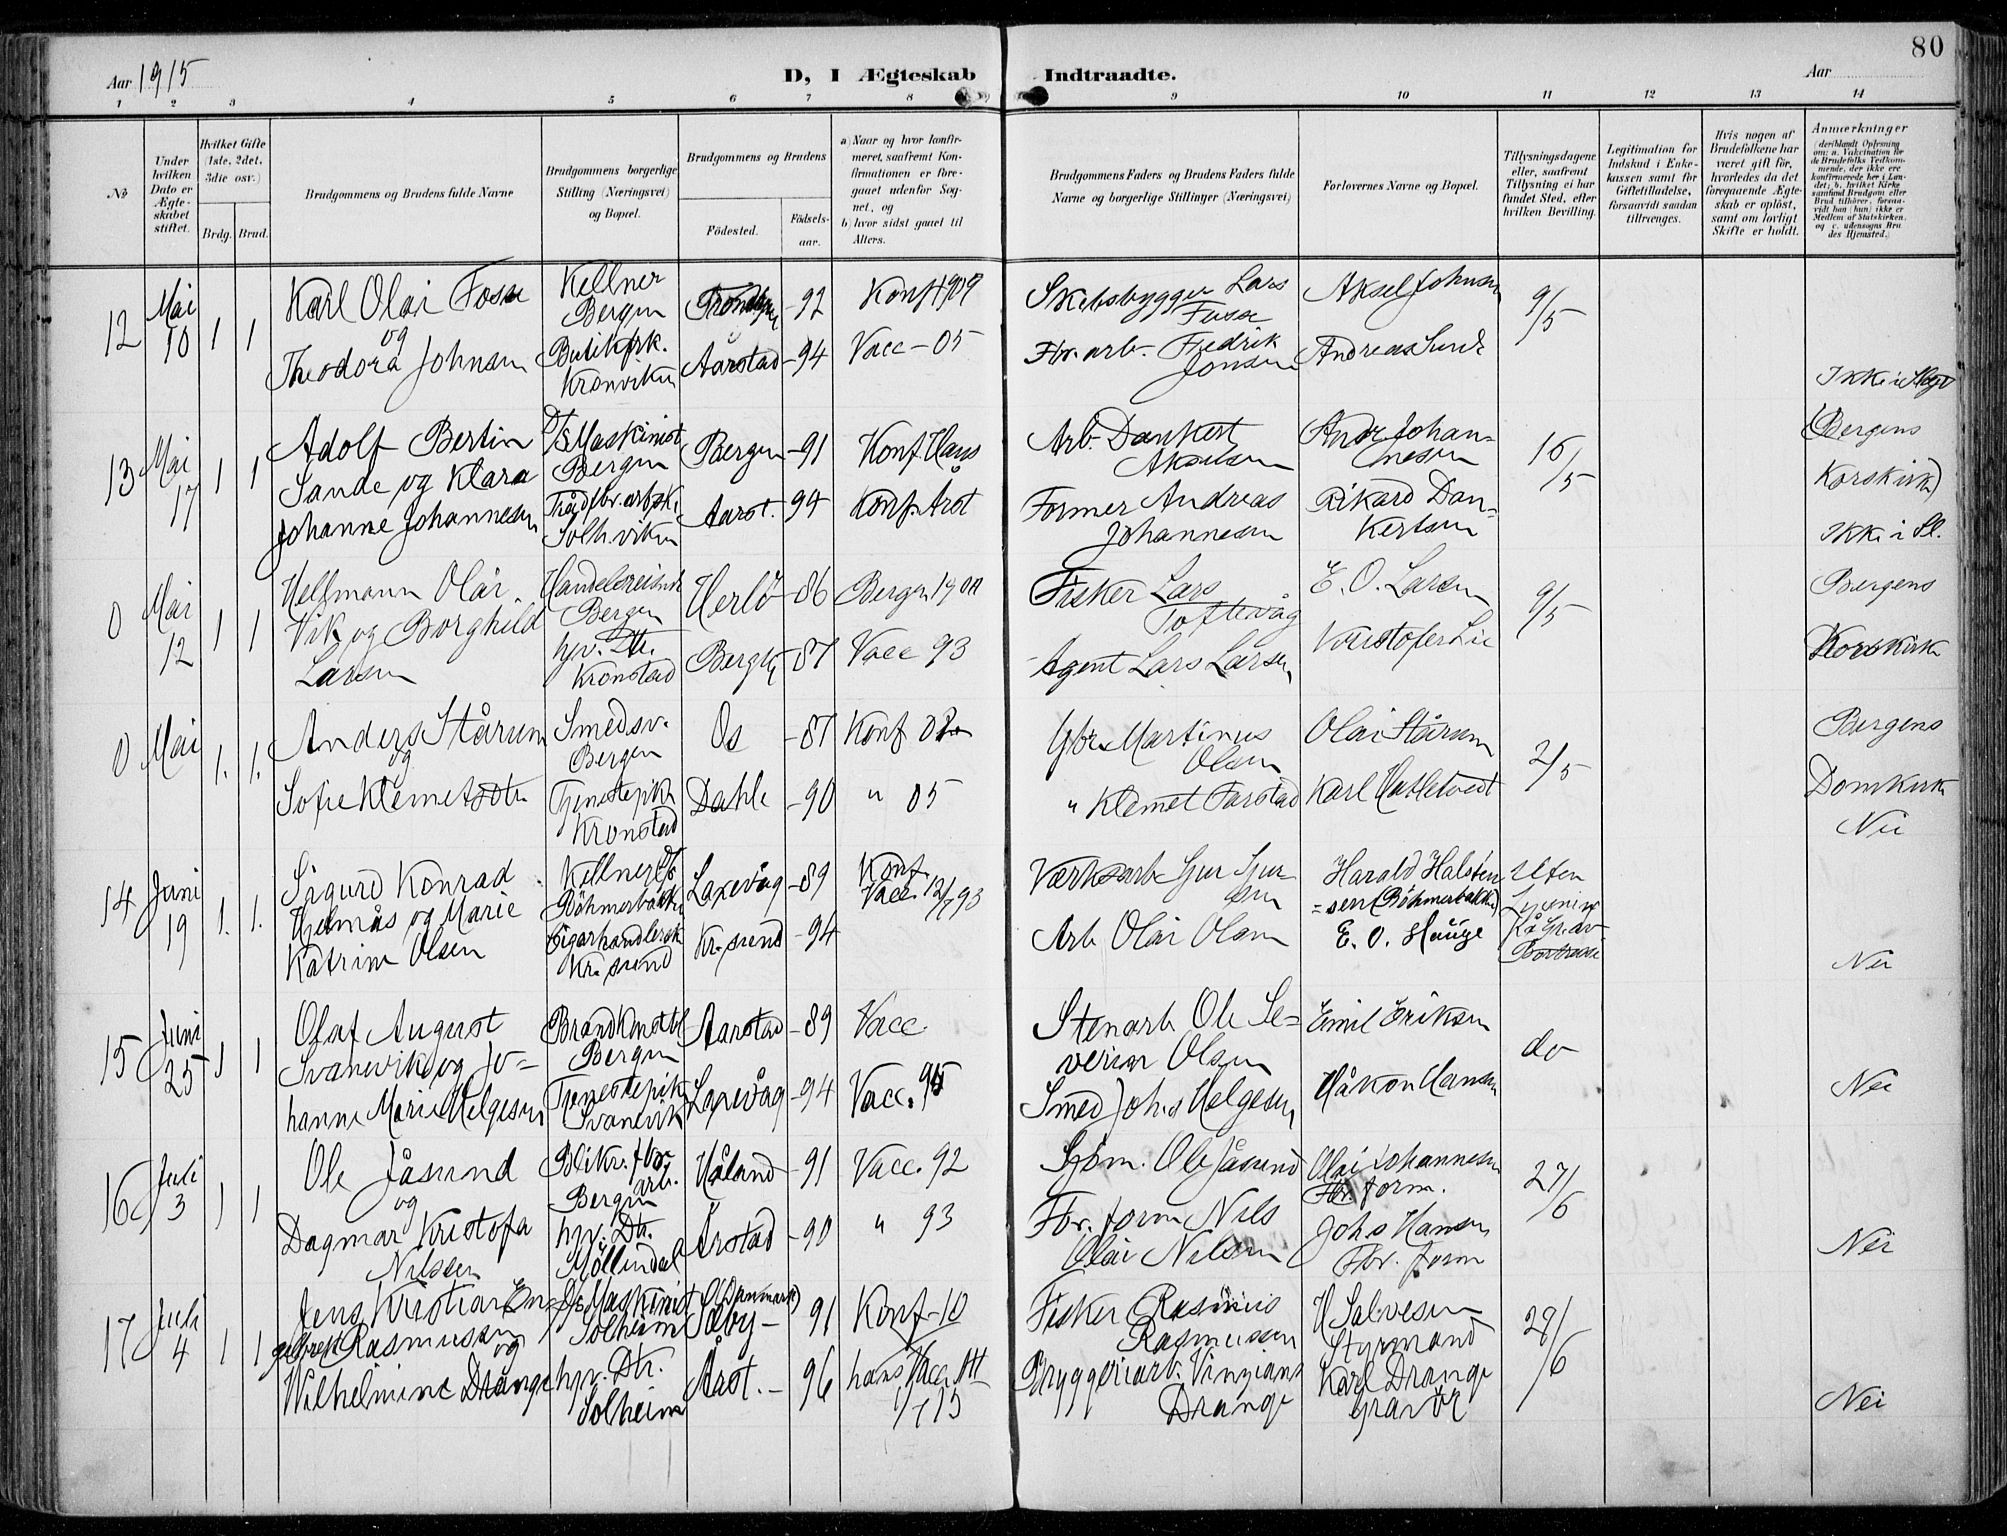 80
Aar 1915
D, I Ægteskab Indtraadte.
Aar
1 2 3 4 5 6 7 8 9 10 11 12 13 14
No
Under hvilken Dato er Ægteskabet stiftet.
Hvilket Gifte (1ste, 2det, 3die osv.)
Brdg. Brud.
Brudgommens og Brudens fulde Navne
Brudgommens borgerlige Stilling (Næringsvei) og Bopæl.
Brudgommens og Brudens
Födested. Födselsaar.
a) Naar og hvor konfirmeret, saafremt Konfirmationen er foregaaet udenfor Sognet, og
b) hvor sidst gaaet til Alters.
Brudgommens Faders og Brudens Faders fulde Navne og borgerlige Stillinger (Næringsvei)
Forlovernes Navne og Bopæl.
Tillysningsdagene eller, saafremt Tillysning ei har fundet Sted, efter hvilken Bevilling.
Legitimation for Indskud i Enkekassen samt for Giftetilladelse, forsaavidt saadan tiltrænges.
Hvis nogen af Brudefolkene har været gift før, hvorledes da det foregaaende Ægteskab er oplöst, samt om lovligt Skifte er holdt.
Anmerkninger
(deriblandt Oplysning om: a. Vakcination for de Brudefolks Vedkommende, der ikke ere konfirmerede her i Landet; b. hvilket Kirkesamfund Brudgom eller Brud tilhører, forsaavidt han (hun) ikke er Medlem af Statskirken, og c. udensogns Brudes Hjemsted.)
12 Mai 10 1 1
Karl Olai Fosse
og
Theodora Johnsen
Kellner
Bergen
Butikfrk.
Kronviken
-92
Aarstad -94
Konf 1909
Vacc - 05
Skibsbygger Lars
Fosse
Fbr. arb. Fredrik
Jonsen
Aksel Johnsen
Andreas Lund
9/5
Ikke i Slegt
13 Mai 17 1 1
Adolf Bertin
Sande og Klara
Johanne Johannesen
D/S Maskinist
Bergen
Trådfbr. arbsk.
Solh. viken
Bergen -91
Aarst. 94
Konf. Hans
Konf. Årst
Arb. Dankert
Former Andreas
Johannesen
Andr Johan=
nesen
Rikard Dan=
kertsen
16/5
(Bergens
Korskirke)
Ikke i Sl.
0 Mai 12 1 1
Helfmann Olai
Vik og Borghild
Larsen
Handelsreisende
Bergen
hjv. Dtr.
Kronstad
Herlö -86
Bergen -87
Bergen 1900
Vacc 93
Fisker Lars
Toftevåg
Agent Lars Larsen
E. O. Larsen
Kristofer Lie
9/5
Bergens
Korskirke
0 Mai 1. 1.
Anders Stårum
og
Sofie Klemetsdtr
Smedsv.
Bergen
Tjenestepike
Kronstad
Os -87
Dahle -90
Konf 02
" 05
Gbr. Martinus
Olsen
" Klemet Farstad
Olai Stårum
Karl Hatletvedt
2/5
Bergens
Domkirke
Nei
14 Juni 19 1. 1.
Sigurd Konrad
Hjelmås og Marie
Katrine Olsen
Kellner D/S
Böhmerbakken
Cigarhandlersk
Kr. sund
Laxevåg -89
Kr. sund -94
Konf.
Vacc. 12/7 93
Værksarb Sjur Sjur
sen
Arb Olai Olsen
Harald Halsten
=sen (Böhmerbakken)
E. O. Hauge
Uten
Lysning
Nei
15 Juni 25 1 1
Olaf August
Svanevik og Jo=
hanne Marie Helgesen
Brandkonstbl
Bergen
Tjenestepike
Svanevik
Aarstad -89
Laxevåg -94
Vacc.
Vacc. 95
Stenarb Ole Se=
verin Olsen
Smed Johs Helgesen
Emil Eriksen
Håkon Hansen
do
Nei
16 Juli 3 1 1
Ole Jåsund
og
Dagmar Kristofa
Nilsen
Blikv. fbr.
arb.
Bergen
hjv. Dtr.
Möllendal
Håland -91
Årstad -90
Vacc. 92
" 93
Sjöm. Ole Jåsund
Fbr. form Nils
Olai Nilsen
Olai Johannesen
Fbr. form.
Johs Hansen
Fbr. form
27/6
Nei
17 Juli 4 1 1
Jens Kristian En=
gelbrekt Rasmussen
og
Wilhelmine Drange
D/s Maskinist
Solheim
hjv. Dtr.
Solheim
(Danmark)
Såby - 91
Årst. - 96
Konf - 10
hans Vacc. Att
1/7 15
Fisker Rasmus
Rasmussen
Bryggeriarb. Vinzians
Drange
H Salvesen
Styrmand
Karl Drange
Gravör
29/6
Nei